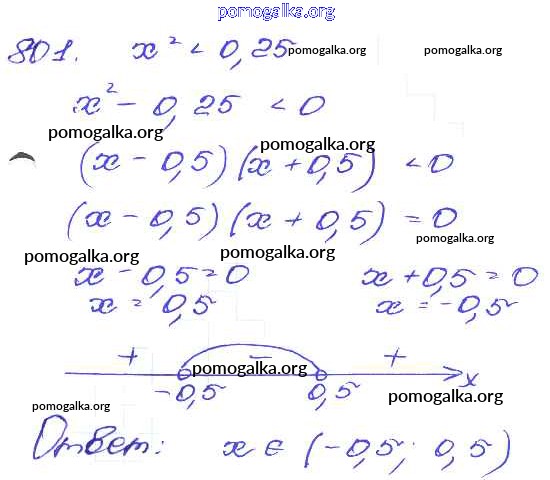 pomogalka.org
801. x² < 0,25 pomogalka.org pomogalka.org
x² - 0,25 < 0
pomogalka.org pomogalka.org
(x - 0,5) (x + 0,5) < 0
(x - 0,5) (x + 0,5) = 0
pomogalka.org pomogalka.org pomogalka.org
x - 0,5 = 0 x + 0,5 = 0
x = 0,5 x = -0,5
+ - +
pomogalka.org
-0,5 0,5 x
pomogalka.org pomogalka.org
Ответ: x ∈ (-0,5; 0,5)
pomogalka.org pomogalka.org